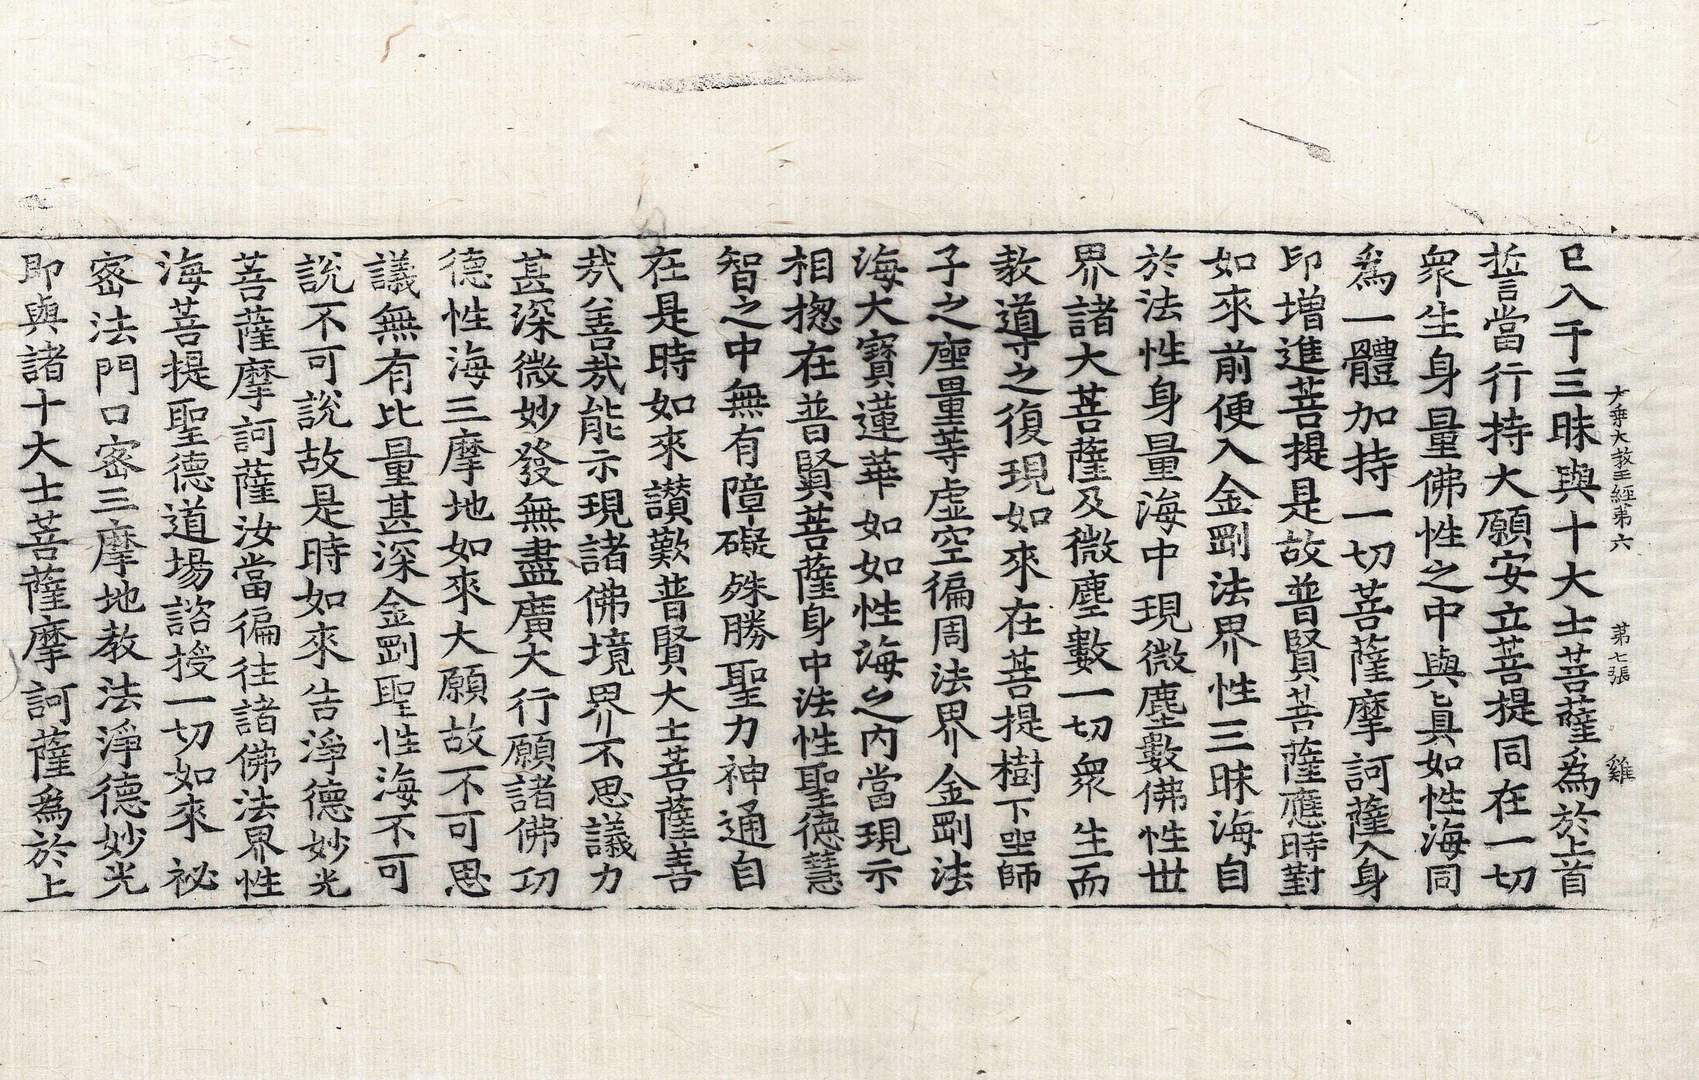 大乘大教王經第六 第七張 雞
已入千三昧與十大士菩薩爲於上首
誓當行持大願安立菩提同在一切
衆生身量佛性之中與眞如性海同
爲一體加持一切菩薩摩訶薩入身
印增進菩提是故普賢菩薩應時對
如來前便入金剛法界性三昧海自
於法性身量海中現微塵數佛性世
界諸大菩薩及微塵數一切衆生而
教導之復現如來在菩提樹下坐師
子之座量等虛空徧周法界金剛法
海大寶蓮華如如性海之內當現示
相揔在普賢菩薩身中法性聖德慧
智之中無有障礙殊勝聖力神通自
在是時如來讚歎普賢大士菩薩善
哉善哉能示現諸佛境界不思議力
甚深微妙發無盡廣大行願諸佛功
德性海三摩地如來大願故不可思
議無有比量甚深金剛聖性海不可
說不可說故是時如來告淨德妙光
菩薩摩訶薩汝當徧往諸佛法界性
海菩提聖德道場諮授一切如來祕
密法門口密三摩地教法淨德妙光
即與諸十大士菩薩摩訶薩爲於上